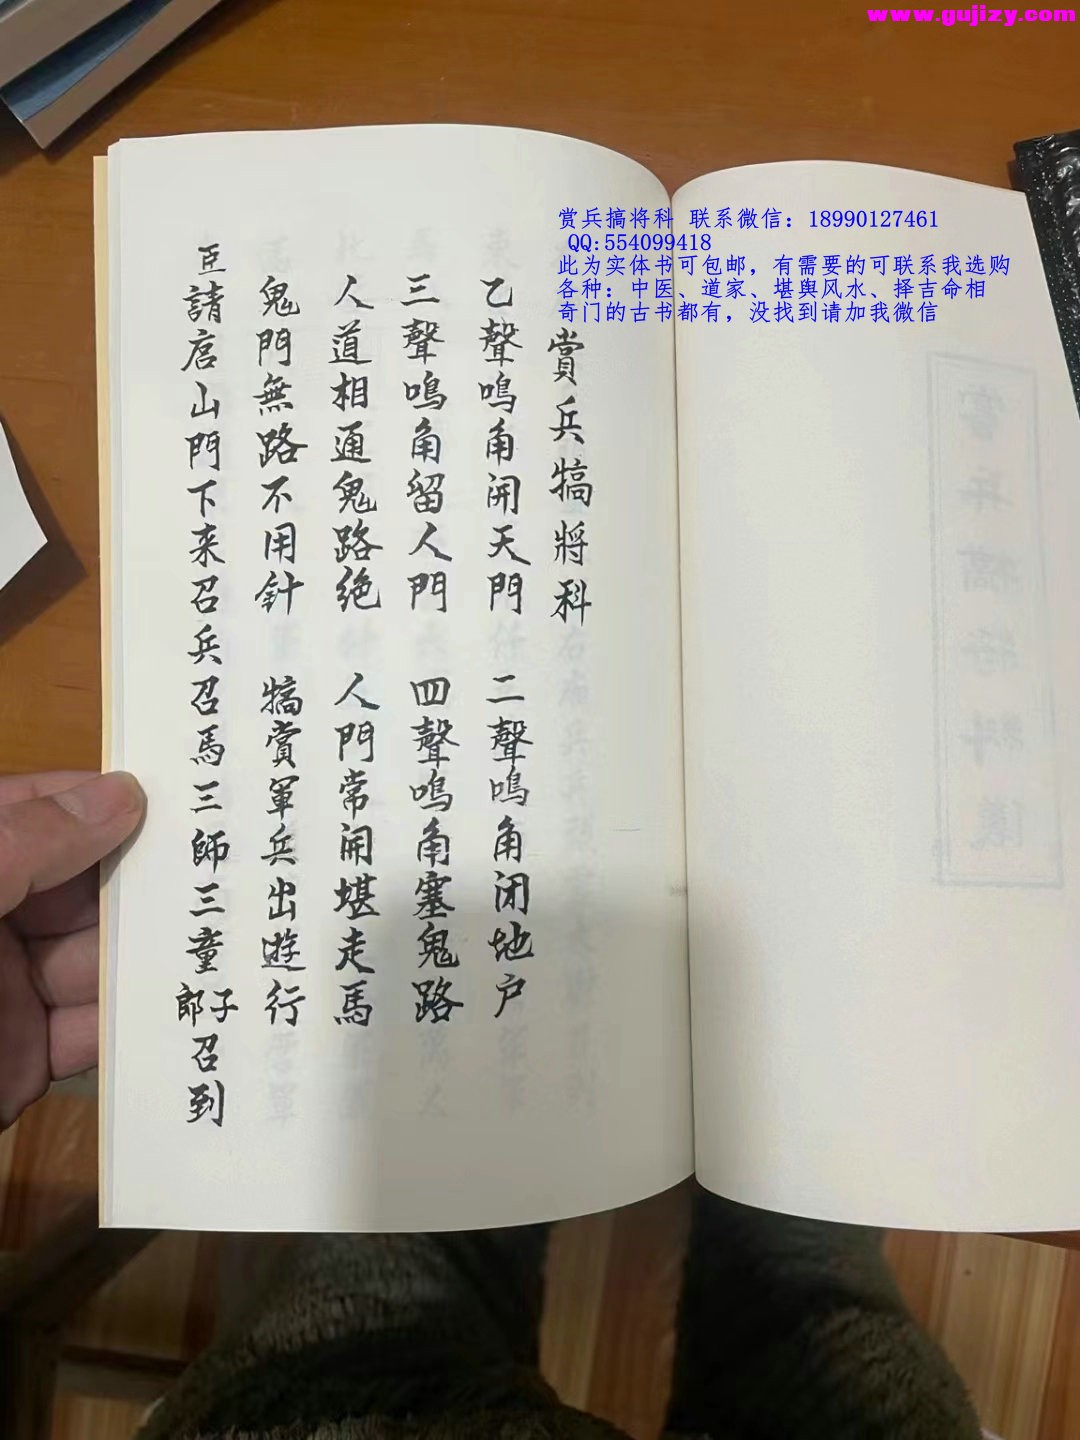 www.gujizy.com
赏兵搞将科 联系微信：18990127461
QQ:554099418
此为实体书可包邮，有需要的可联系我选购
各种：中医、道家、堪舆风水、择吉命相
奇门的古书都有，没找到请加我微信
賞兵犒將科
乙聲鳴角開天門 二聲鳴角闭地户
三聲鳴角留人門 四聲鳴角塞鬼路
人道相通鬼路绝 人門常開堪走馬
鬼門無路不用針 犒賞軍兵出遊行
臣請启山門下来召兵召馬三師三童郎子召到